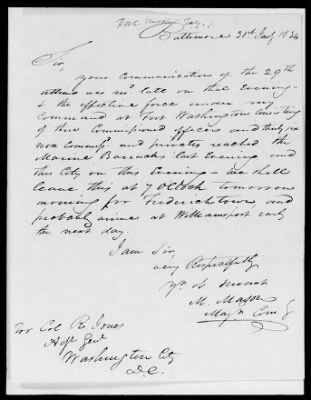 Baltimore 31st Jany 1834
Sir,
your Communication of the 29th
was recd late on that Evening
& the effective force under my
Command at Fort Washington Consisting
of three Commissioned officers and thirty six
non Commissd and privates reached the
Marine Barracks last Evening and
this City on this Evening - we shall
leave this at 7 OClock tomorrow
morning for Fredericktown, and
probably arrive at Williamsport early
the next day.
I am Sir,
very Respectfully
Yr. Ob. Servant
M. Mason
Maj. Comg
Col R. Jones
Adjt Genl
Washington City
D.C.